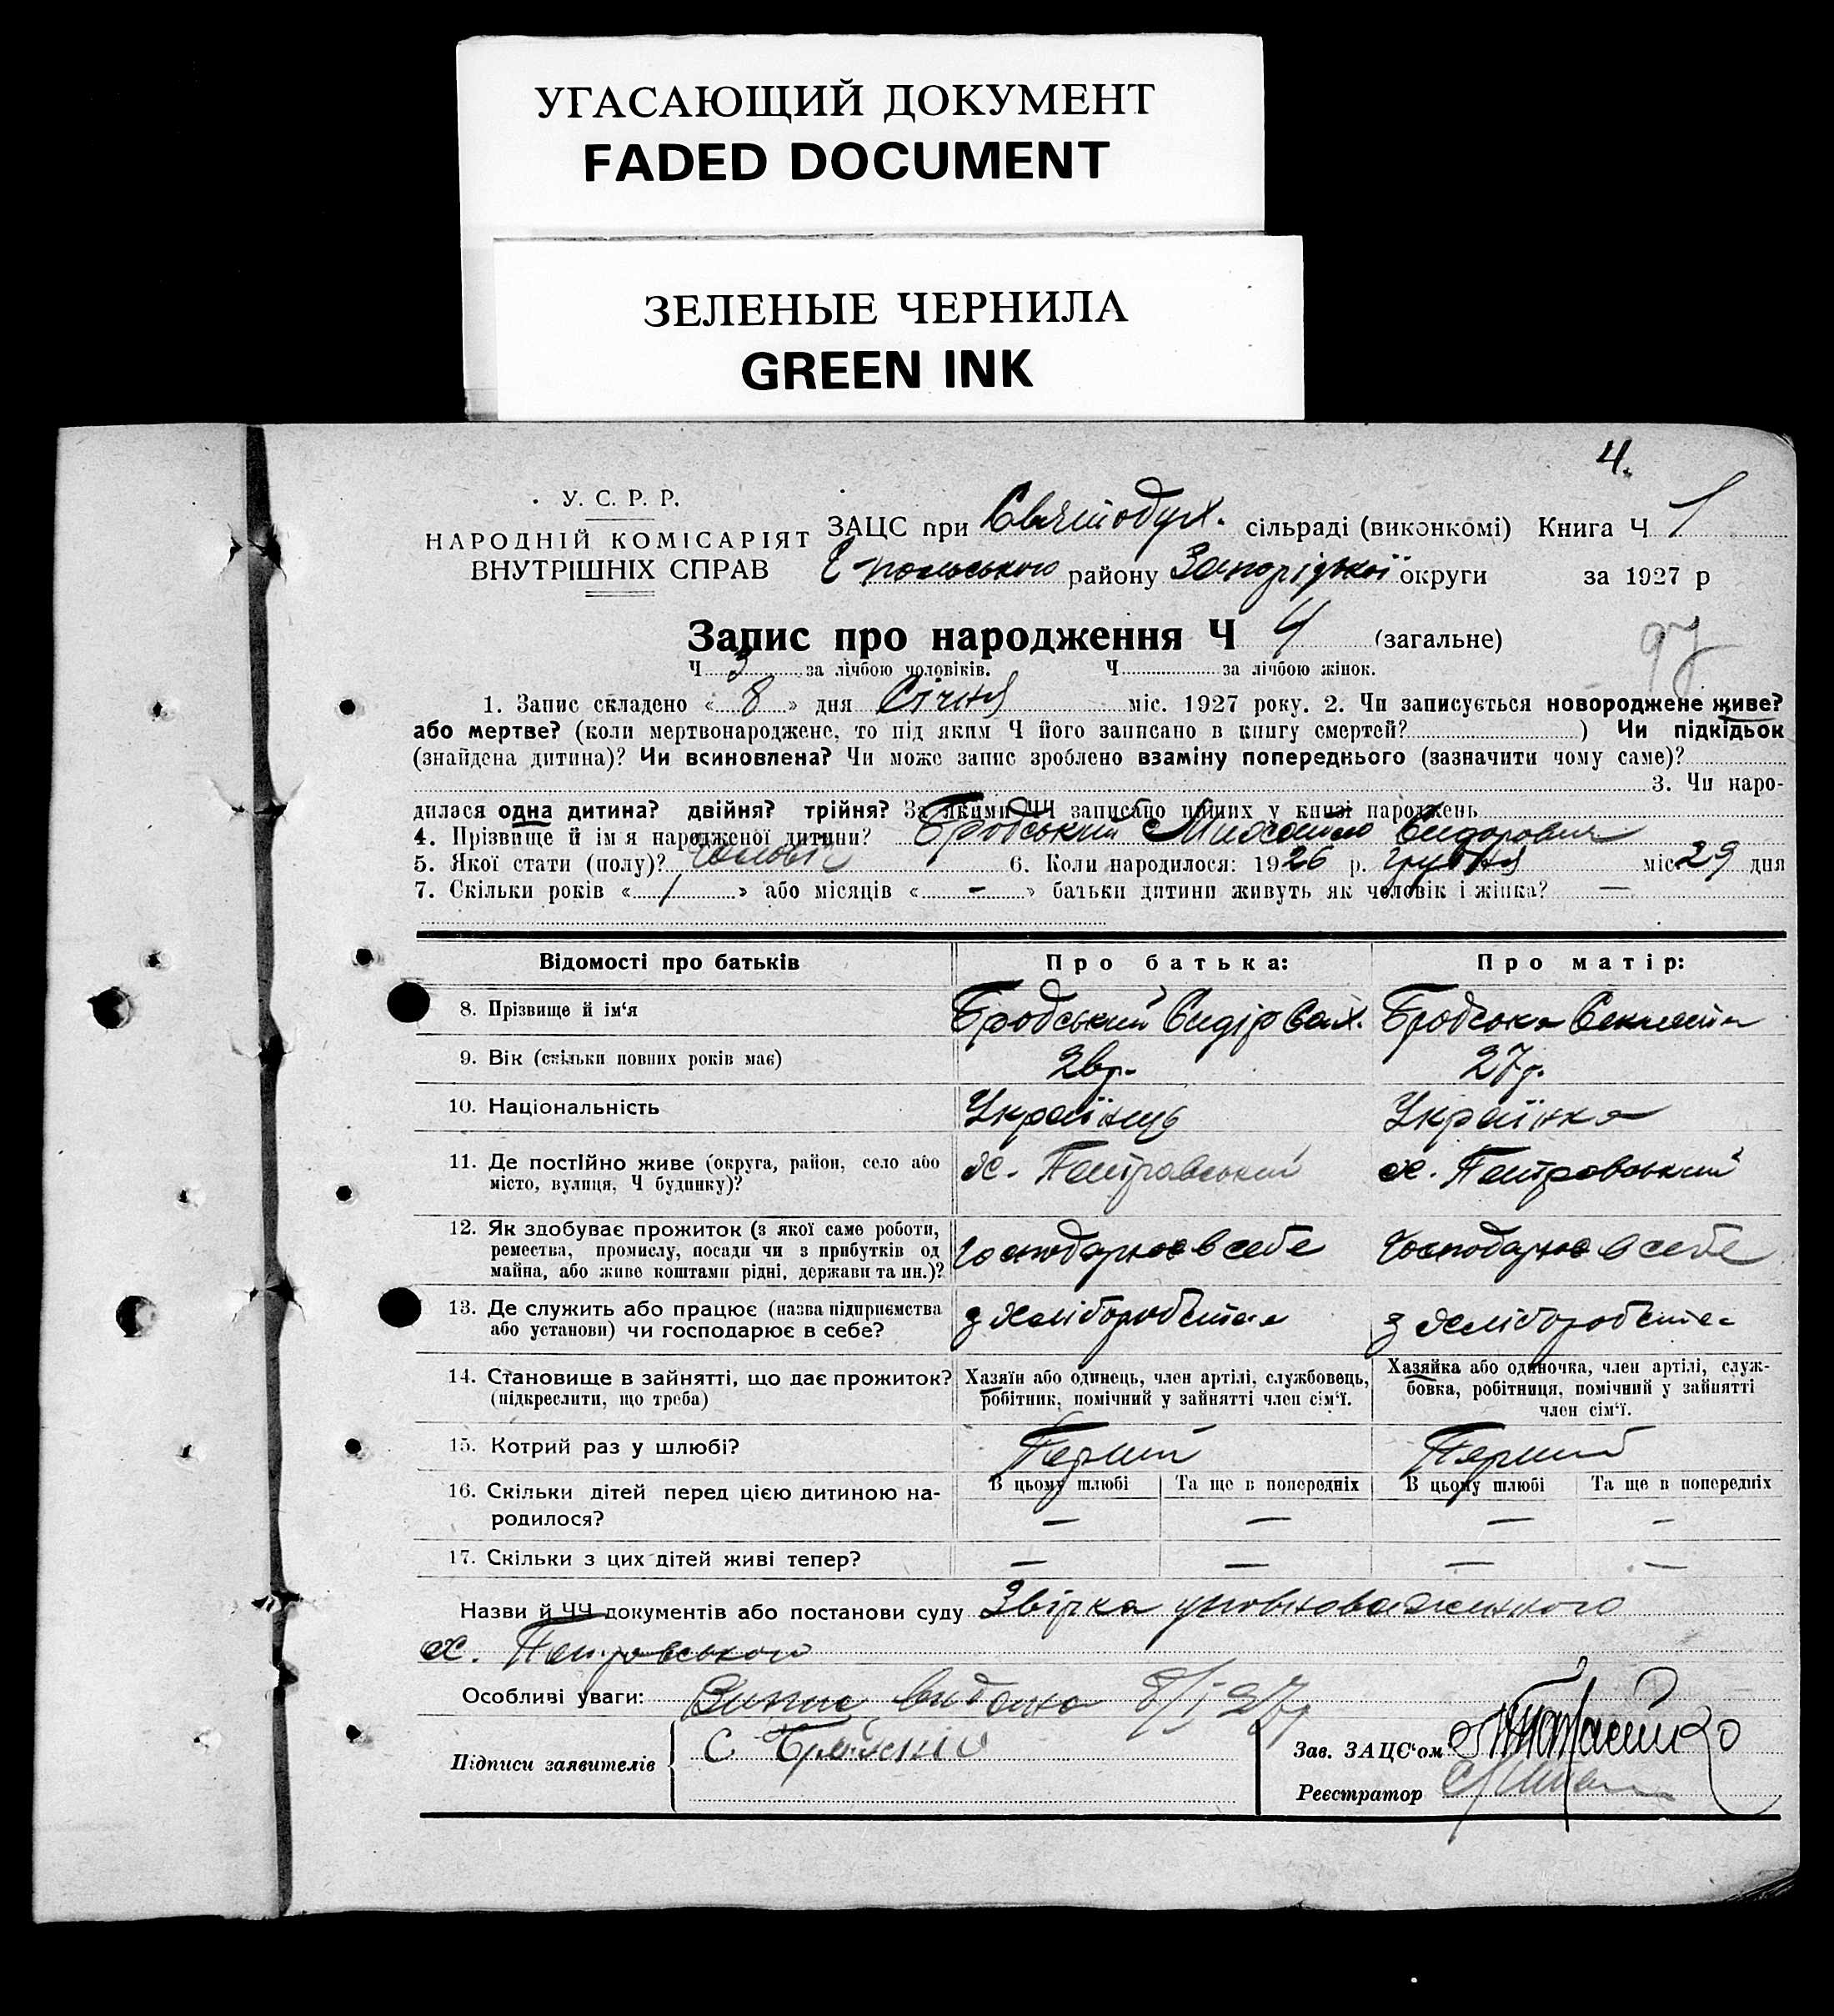 УГАСАЮЩИЙ ДОКУМЕНТ
FADED DOCUMENT
ЗЕЛЕНЫЕ ЧЕРНИЛА
GREEN INK
4.
У. С. Р. Р.
НАРОДНІЙ КОМІСАРІЯТ
ВНУТРІШНІХ СПРАВ
ЗАЦС при Святодух. сільраді (виконкомі) Книга Ч 1
району Запорізької округи за 1927 р
Запис про народження Ч 4 (загальне)
97
Ч 3 за лічбою чоловіків. Ч за лічбою жінок.
1. Запис складено « 8 » дня Січня міс. 1927 року. 2. Чи записується новороджене живе?
або мертве? (коли мертвонароджене, то під яким Ч його записано в книгу смертей? ) Чи підкідьок
(знайдена дитина)? Чи всиновлена? Чи може запис зроблено взаміну попереднього (зазначити чому саме)?
3. Чи наро-
дилася одна дитина? двійня? трійня? За якими ЧЧ записано инших у книзі народжень
4. Прізвище й ім я народженої дитини? Бродський Михайло Сидорович
5. Якої стати (полу)? чоловіч 6. Коли народилося: 1926 р. грудня міс. 29 дня
7. Скільки років « 1 » або місяців « - » батьки дитини живуть як чоловік і жінка? —
Відомості про батьків Про батька: Про матір:
8. Прізвище й ім'я Бродський Сидір Бродська
9. Вік (скільки повних років має) 26р. 27р.
10. Національність Українець Українка
11. Де постійно живе (округа, район, село або
місто, вулиця, Ч будинку)? х. Петровський х. Петровський
12. Як здобуває прожиток (з якої саме роботи,
ремества, промислу, посади чи з прибутків од
майна, або живе коштами рідні, держави та ин.)? Господарює в себе Господарює в себе
13. Де служить або працює (назва підприємства
або установи) чи господарює в себе? з хліборобства з хліборобства
14. Становище в зайнятті, що дає прожиток?
(підкреслити, що треба)
Хазяїн або одинець, член артілі, службовець,
робітник, помічний у зайнятті член сім'ї.
Хазяйка або одиночка, член артілі, служ-
бовка, робітниця, помічний у зайнятті
член сім'ї.
15. Котрий раз у шлюбі? Перший Перший
В цьому шлюбі Та ще в попередніх В цьому шлюбі Та ще в попередніх
16. Скільки дітей перед цією дитиною на-
родилося? — — — —
17. Скільки з цих дітей живі тепер? — — — —
Назви й ЧЧ документів або постанови суду Звірка уповноваженного
х. Петровського
Особливі уваги: Випис видано 8/I 27р
Підписи заявителів С
Зав. ЗАЦС'ом
Реєстратор